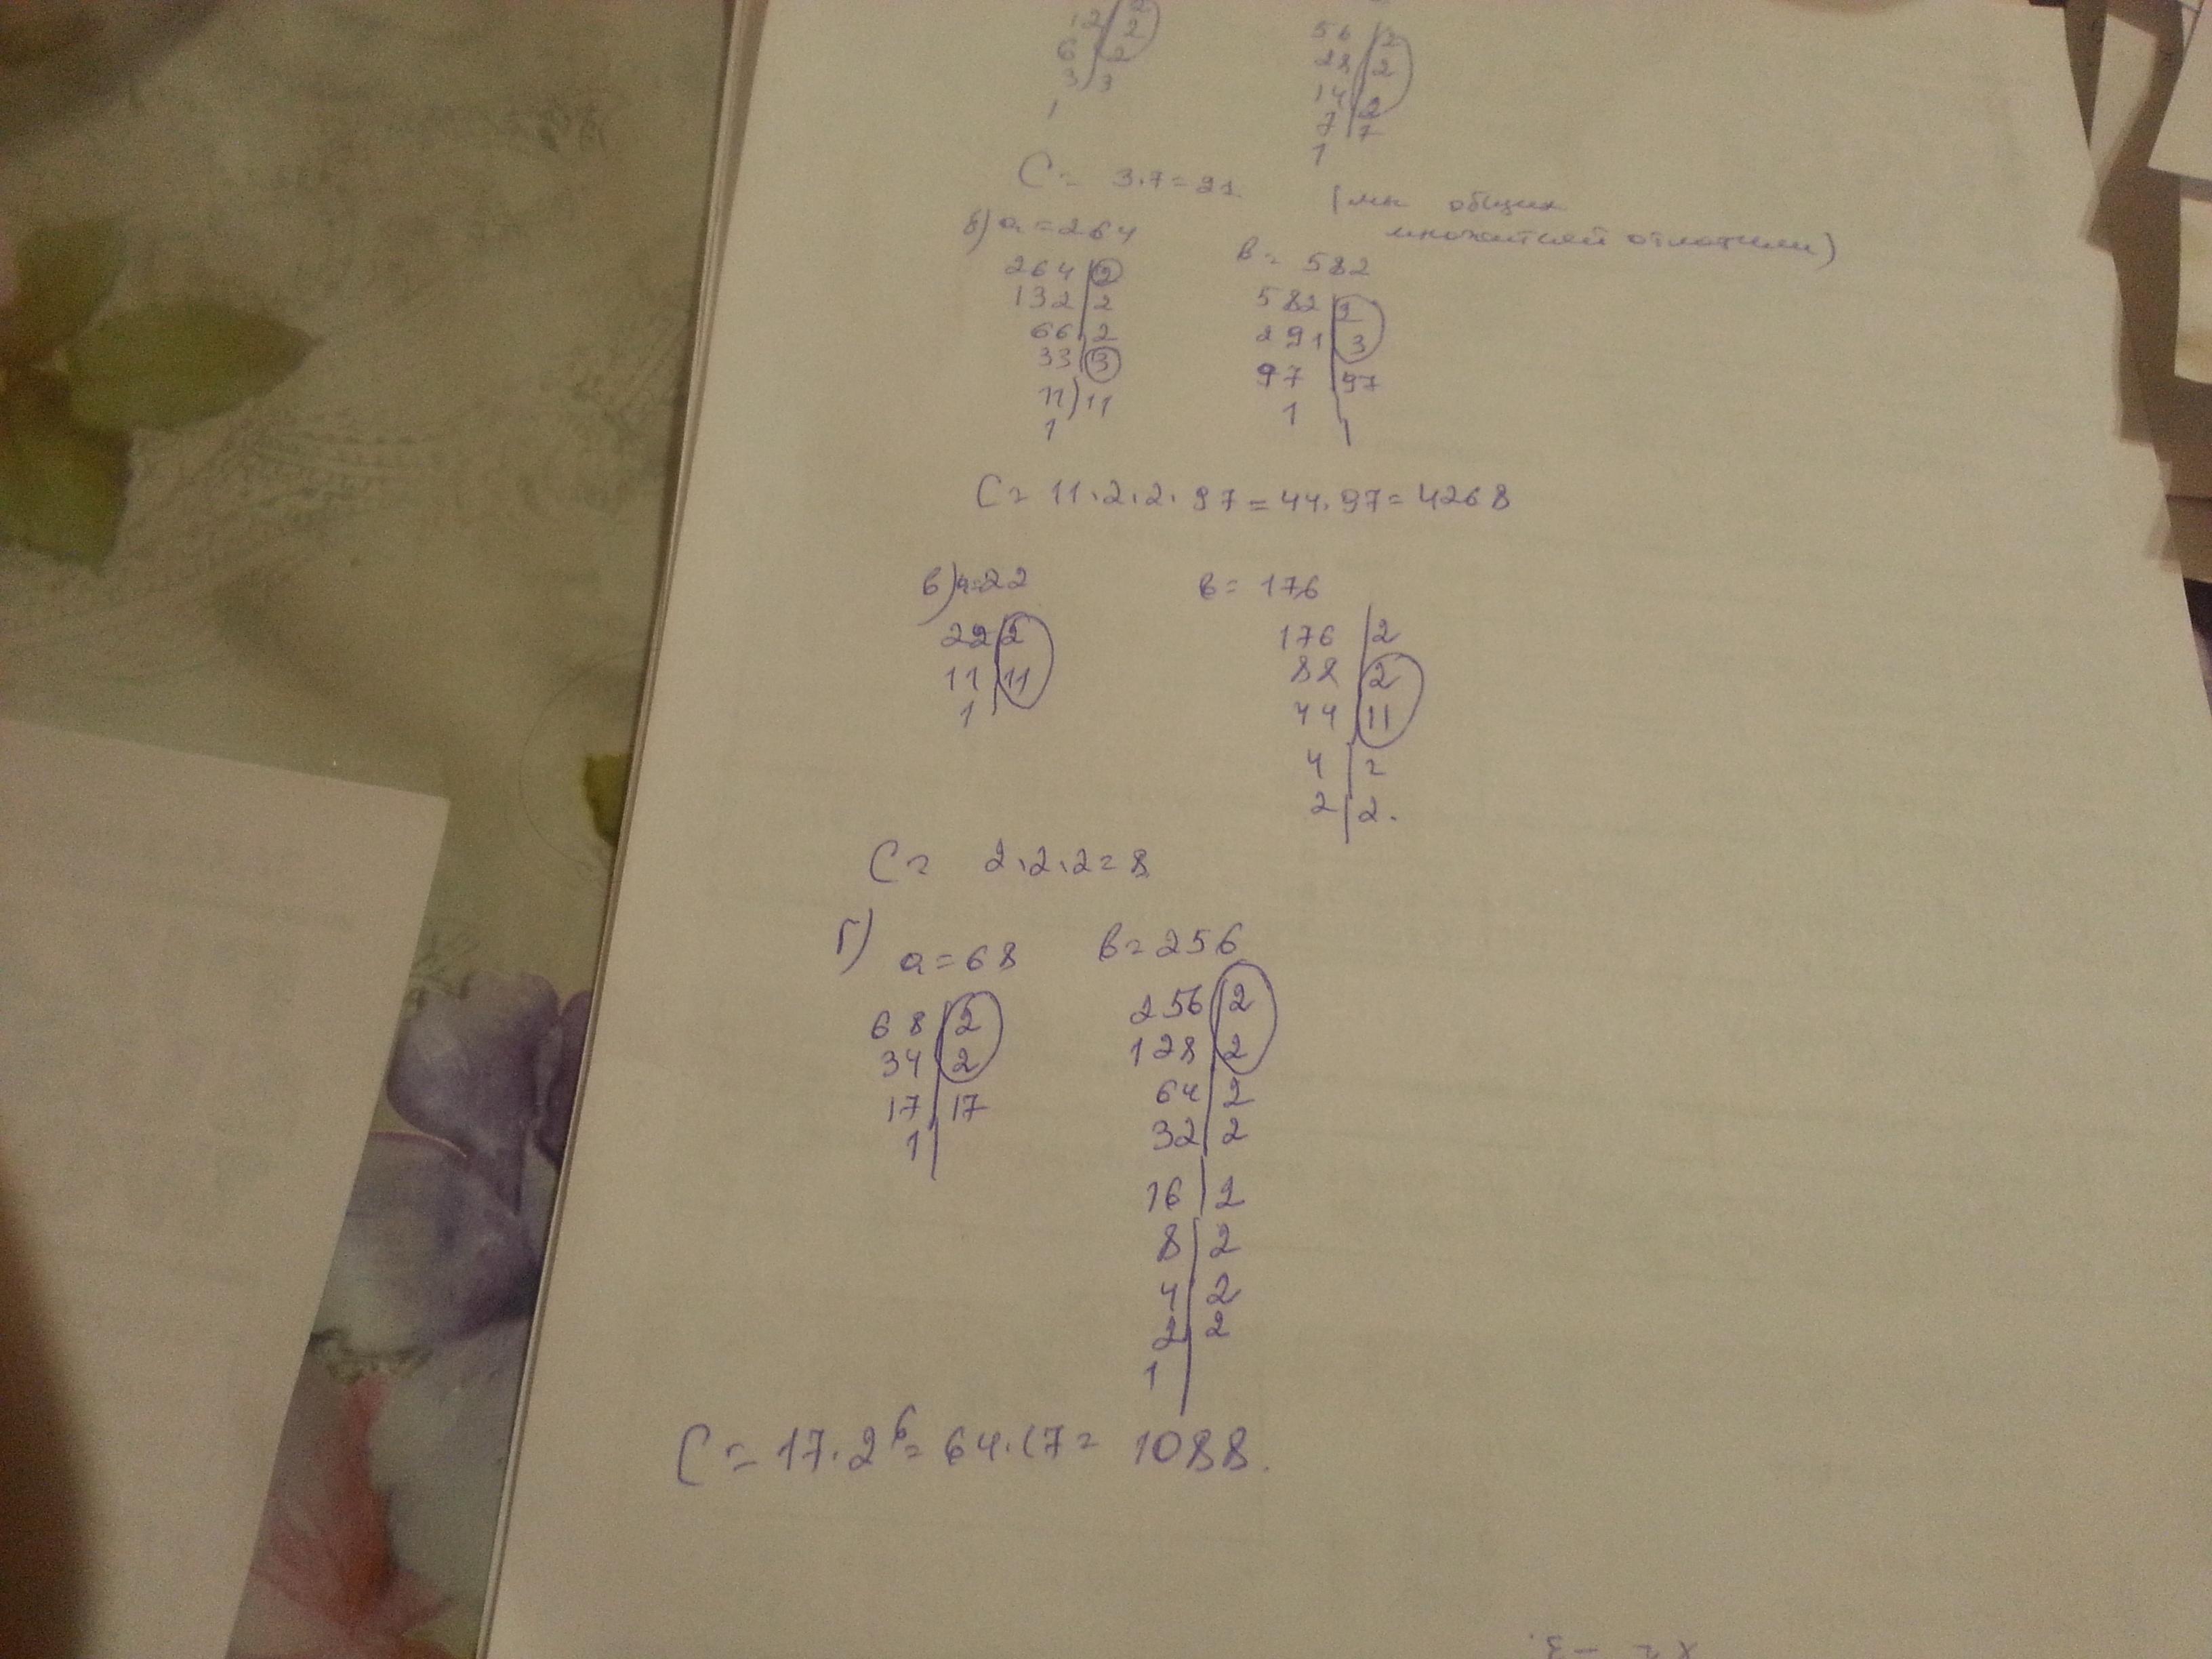 12 | 2
6 | 2
3 | 3
1
56 | 2
28 | 2
14 | 2
7 | 7
1
C = 3·7=21
(мы общих
множителей отложили)
б) a=264
264 | 2
132 | 2
66 | 2
33 | 3
11 | 11
1
в= 582
582 | 2
291 | 3
97 | 97
1
C= 11·2·2·97=44·97=4268
в) a=22
22 | 2
11 | 11
1
в= 176
176 | 2
88 | 2
44 | 11
4 | 2
2 | 2.
C= 2·2·2=8
г) a=68
68 | 2
34 | 2
17 | 17
1
в=256
256 | 2
128 | 2
64 | 2
32 | 2
16 | 2
8 | 2
4 | 2
2 | 2
1
C=17·2⁶=64·17= 1088.